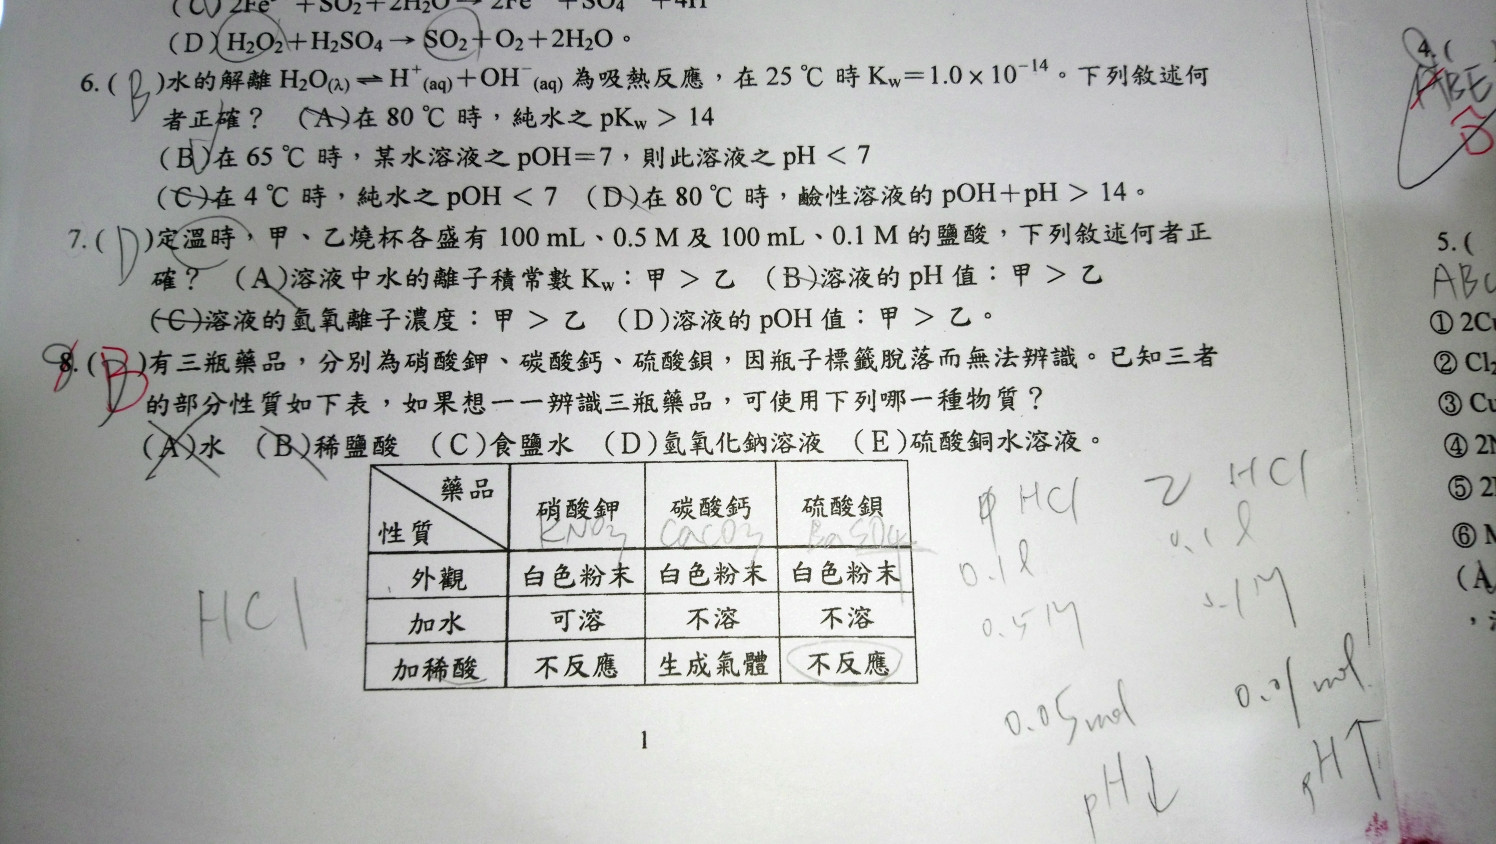 +SO₂+2H₂O→2Fe
(D)H₂O₂+H₂SO₄→SO₂+O₂+2H₂O。
6.(B)水的解離 H₂O(λ)⇌H⁺(aq)+OH⁻(aq)為吸熱反應，在 25 ℃ 時 Kw＝1.0×10⁻¹⁴。下列敘述何
者正確？ (A)在 80 ℃ 時，純水之 pKw > 14
(B)在 65 ℃ 時，某水溶液之 pOH＝7，則此溶液之 pH < 7
(C)在 4 ℃ 時，純水之 pOH < 7 (D)在 80 ℃ 時，鹼性溶液的 pOH＋pH > 14。
7.(D)定溫時，甲、乙燒杯各盛有 100 mL、0.5 M 及 100 mL、0.1 M 的鹽酸，下列敘述何者正
確？ (A)溶液中水的離子積常數 Kw：甲 > 乙 (B)溶液的 pH 值：甲 > 乙
(C)溶液的氫氧離子濃度：甲 > 乙 (D)溶液的 pOH 值：甲 > 乙。
8.(B)有三瓶藥品，分別為硝酸鉀、碳酸鈣、硫酸鋇，因瓶子標籤脫落而無法辨識。已知三者
的部分性質如下表，如果想一一辨識三瓶藥品，可使用下列哪一種物質？
(A)水 (B)稀鹽酸 (C)食鹽水 (D)氫氧化鈉溶液 (E)硫酸銅水溶液。
藥品
性質
硝酸鉀 碳酸鈣 硫酸鋇
KNO₃ CaCO₃ BaSO₄
外觀 白色粉末 白色粉末 白色粉末
加水 可溶 不溶 不溶
加稀酸 不反應 生成氣體 不反應
HCl
甲 HCl 乙 HCl
0.1l 0.1l
0.5M 0.1M
0.05mol 0.01mol
pH↓ pH↑
1
4.(
ABE
5.(
ABC
① 2Cu
② Cl₂
③ Cu
④ 2N
⑤ 2
⑥
(A